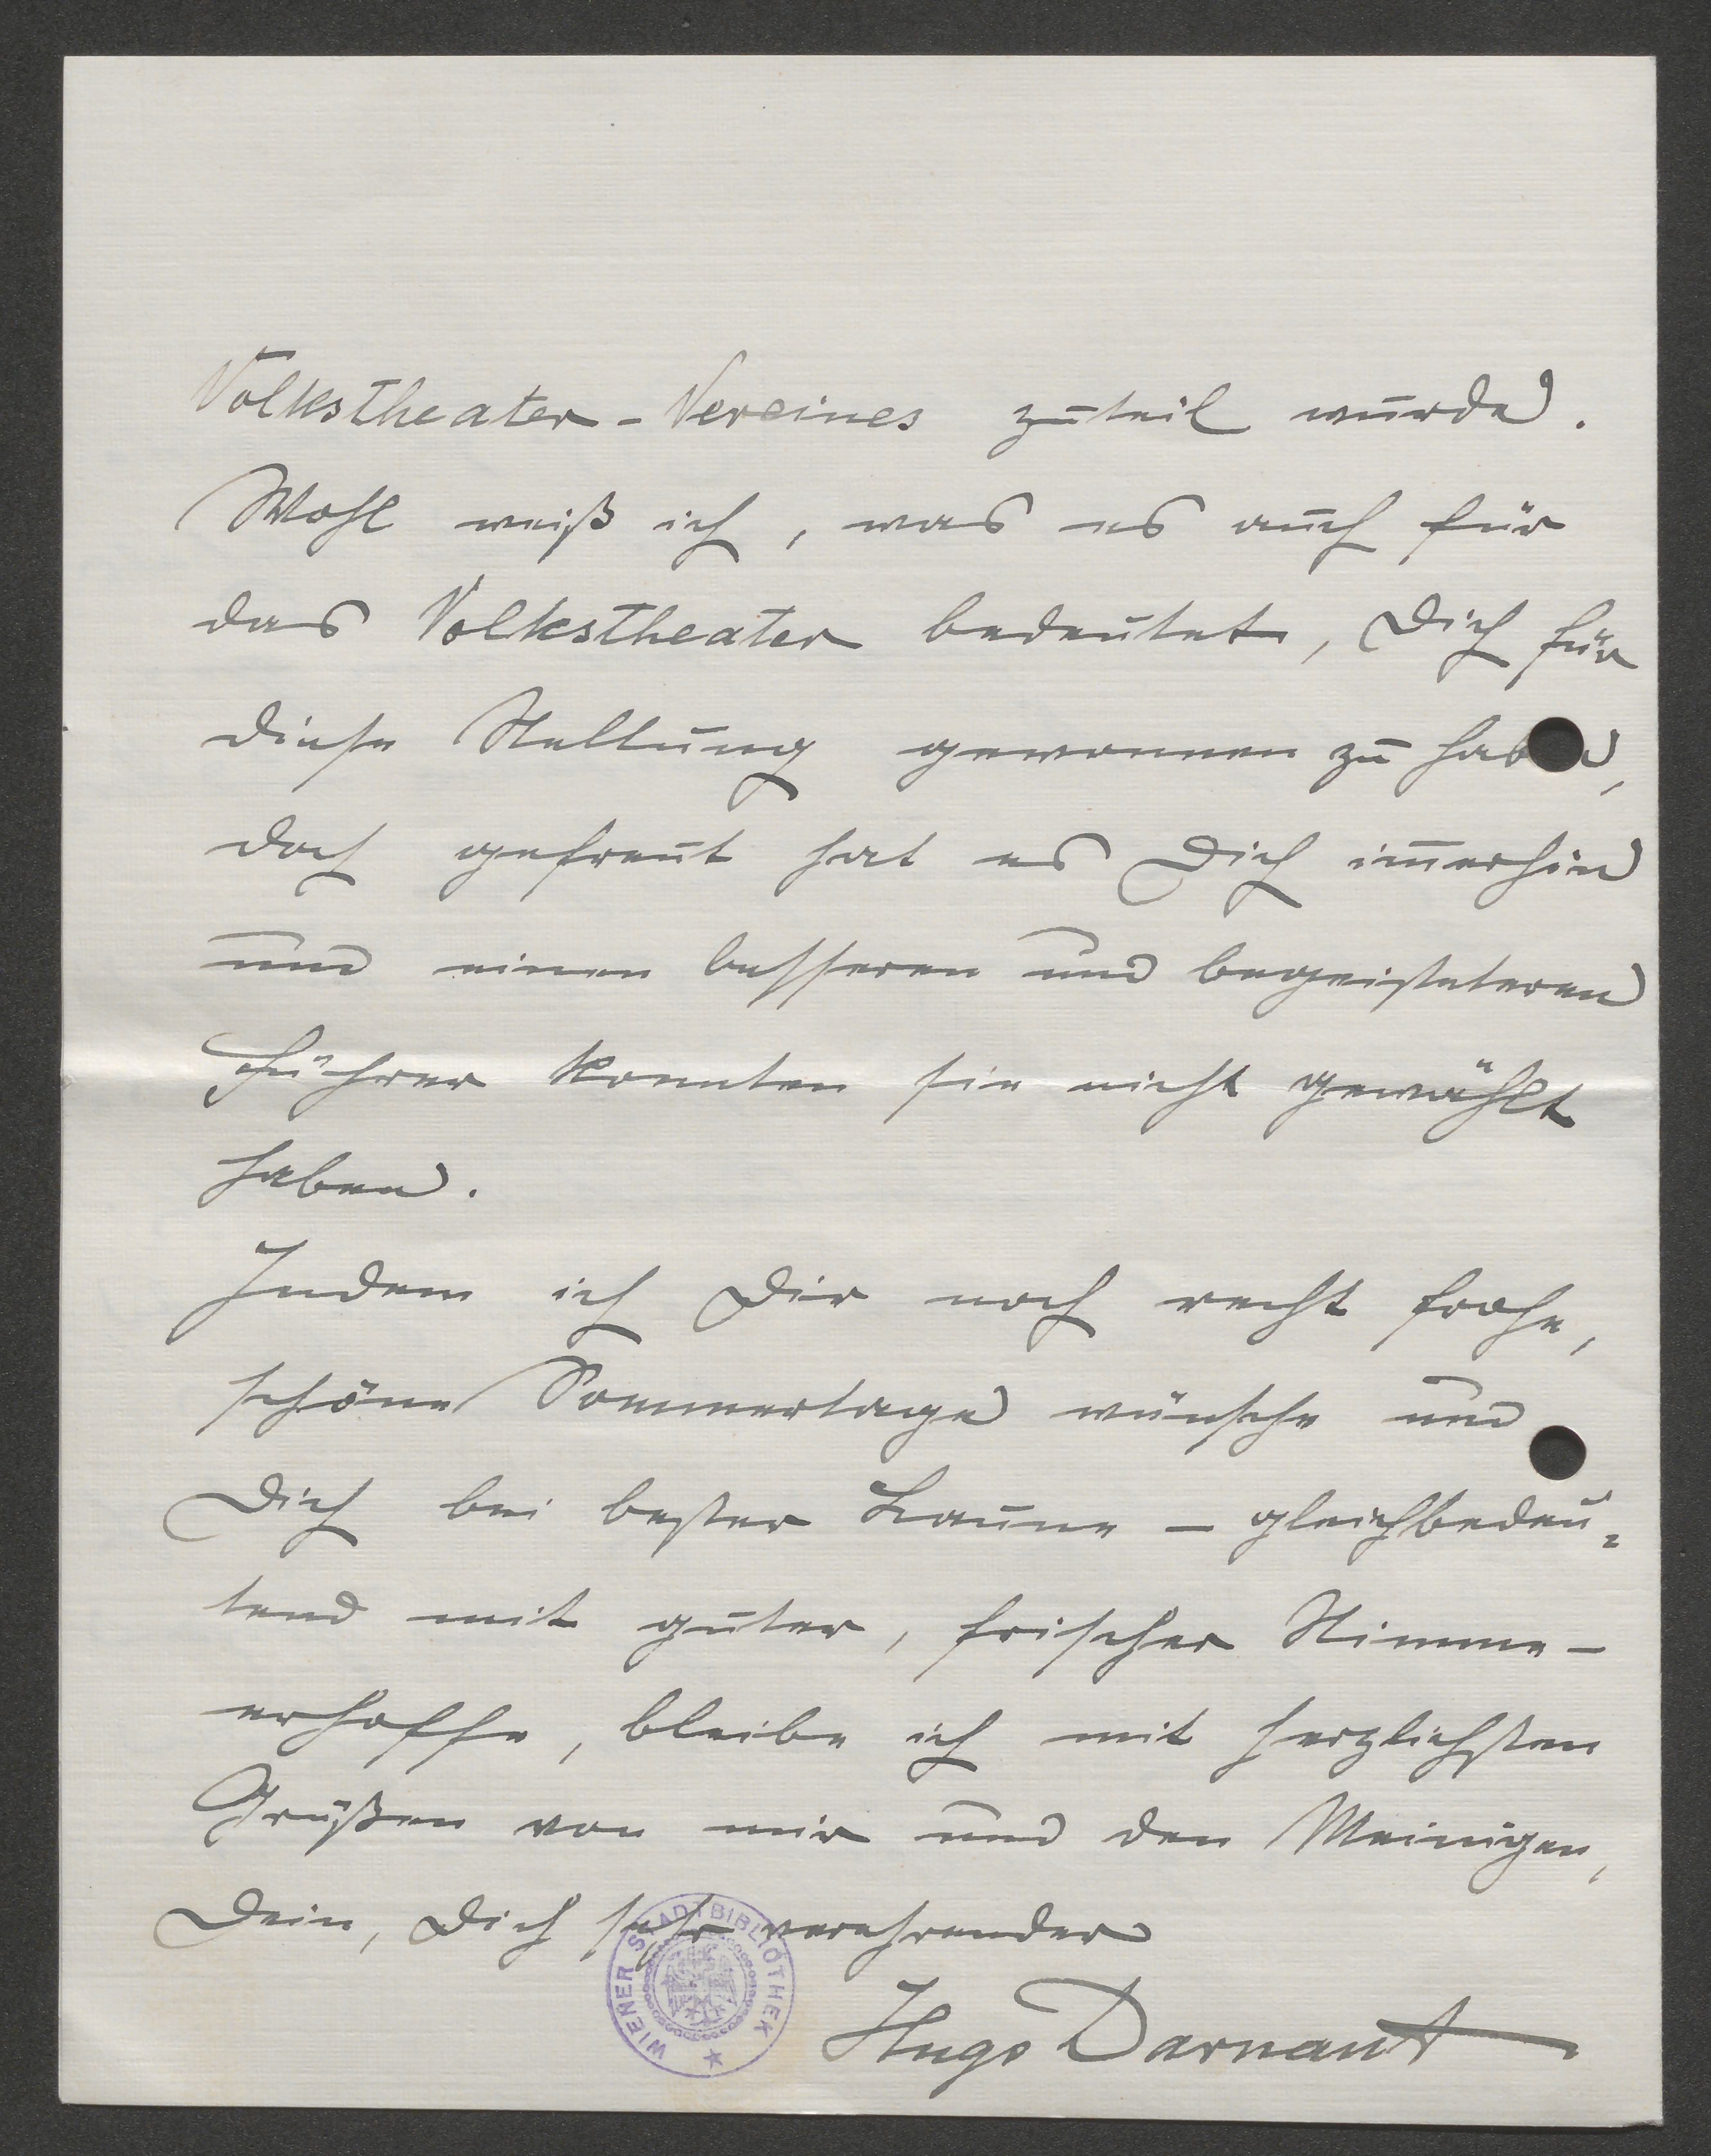 Volkstheater-Vereines zuteil wurde.
Wohl weiß ich, was es auch für
das Volkstheater bedeutet, Dich für
diese Stellung gewonnen zu haben,
doch gefreut hat es Dich im̅erhin
und einen besseren und begeisteteren
Führer konnten sie nicht gewählt
haben.
Indem ich Dir noch recht frohe,
schöne Sommertage wünsche und
Dich bei bester Laune – gleichbedeu=
tend mit guter, frischer Stimme –
erhoffe, bleibe ich mit herzlichsten
Grüßen von mir und den Meinigen,
Dein, Dich sehr verehrender
WIENER STADTBIBLIOTHEK
Hugo Darnaut